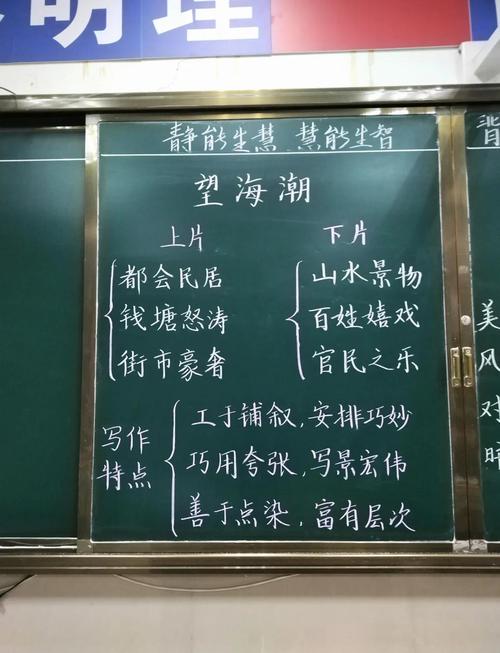 明理
静能生慧 慧能生智
望海潮
上片
下片
都会民居
钱塘怒涛
街市豪奢
山水景物
百姓嬉戏
官民之乐
写作
特点
工于铺叙,安排巧妙
巧用夸张,写景宏伟
善于点染,富有层次
美
风
对